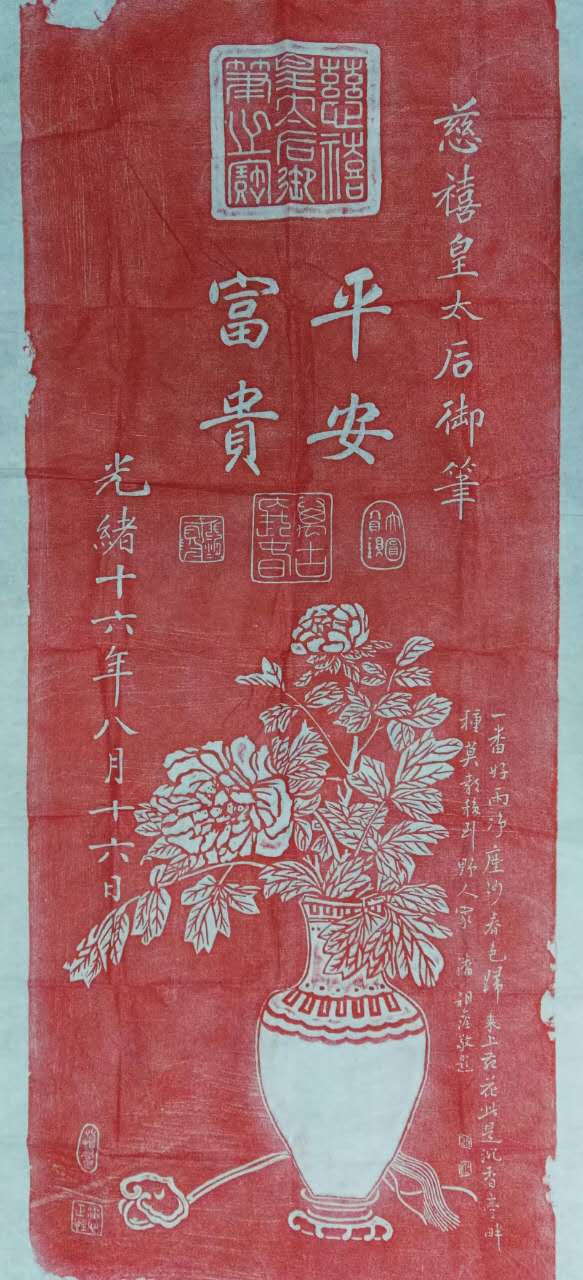 慈禧皇太后御筆
慈禧
皇太后御
筆之寶
平安
富貴
光緒十六年八月十六日
一番好雨淨塵沙春色歸來上苑花此是沉香亭畔
種莫教移到野人家 潘祖蔭敬題